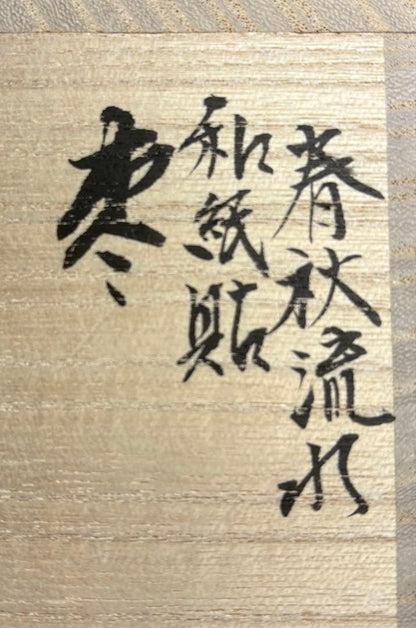 春秋流水
和紙貼
棗